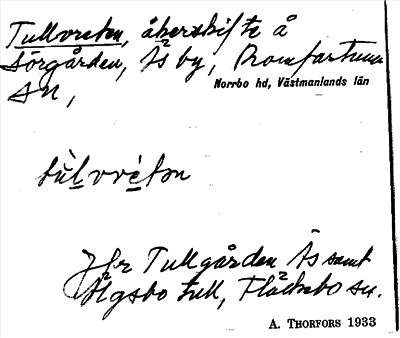 Tullvreten, åkerskifte å
Sörgården, Ås by, Romfartuna
sn,
Norrbo hd, Västmanlands län
Jfr Tullgården Ås samt
Älgsbo tull, Fläckebo sn.
A. THORFORS 1933